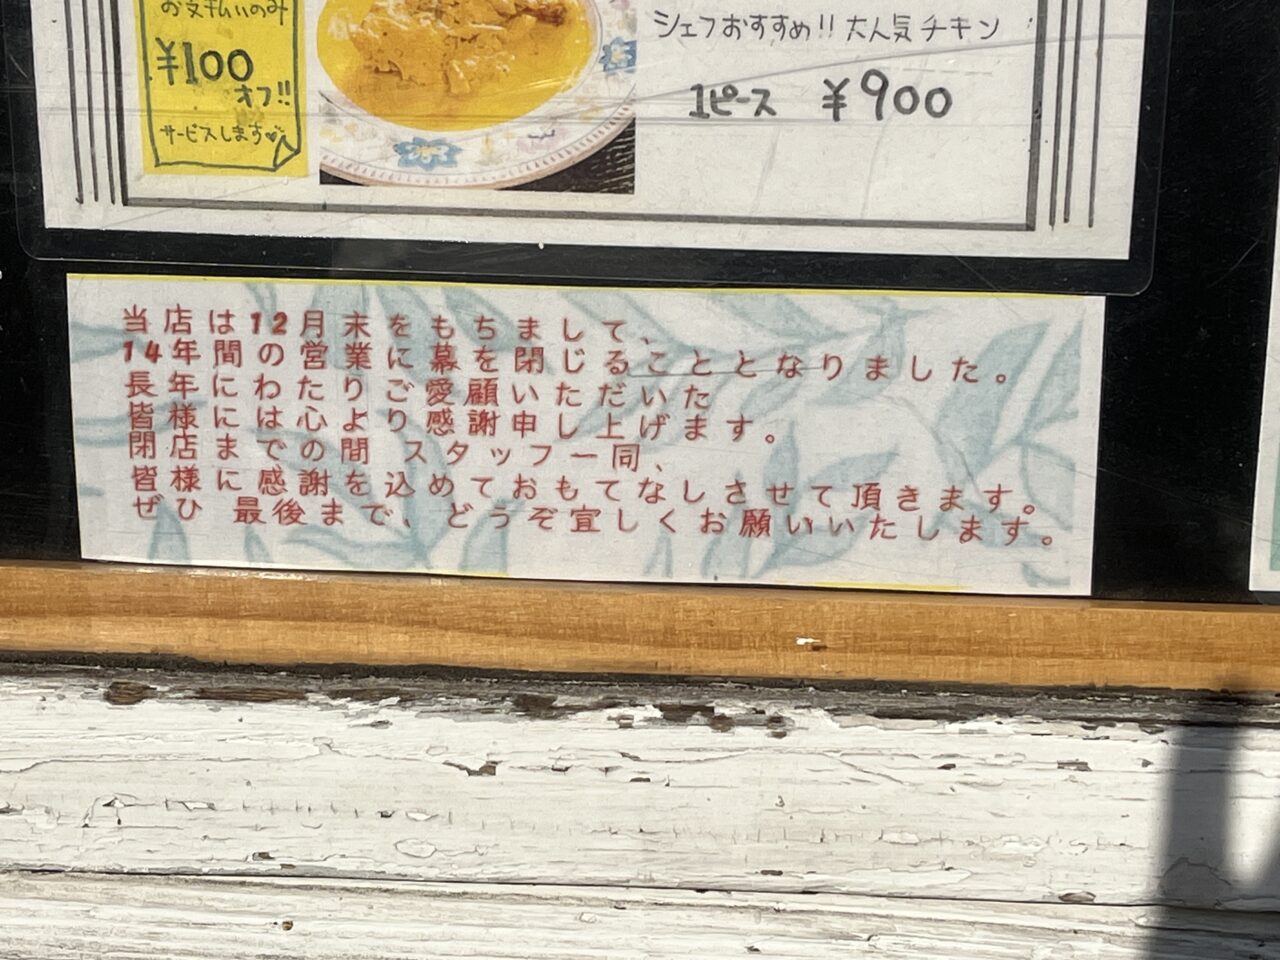 お支払いのみ
¥100
オフ!!
サービスします
シェフおすすめ!! 大人気チキン
1ピース ¥900
当店は12月末をもちまして、
14年間の営業に幕を閉じることとなりました。
長年にわたりご愛顧いただいた
皆様には心より感謝申し上げます。
閉店までの間 スタッフ一同、
皆様に感謝を込めておもてなしさせて頂きます。
ぜひ 最後まで、どうぞ宜しくお願いいたします。